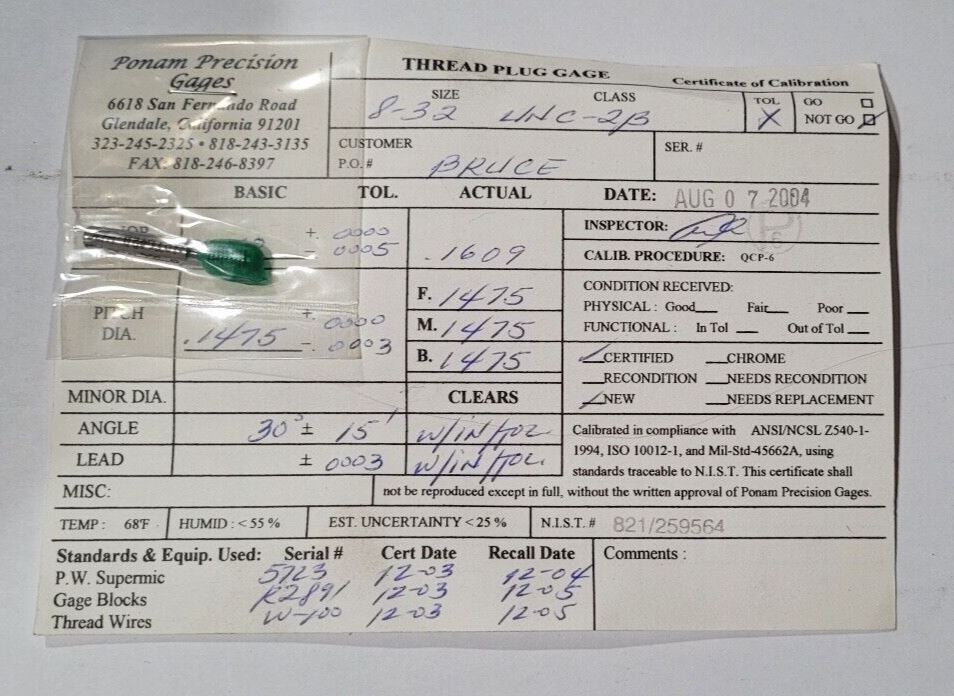 Ponam Precision
Gages
6618 San Fernando Road
Glendale, California 91201
323-245-2325 • 818-243-3135
FAX: 818-246-8397
THREAD PLUG GAGE
Certificate of Calibration
SIZE CLASS
8-32 UNC-2B
TOL X
GO
NOT GO
CUSTOMER
P.O. # BRUCE
SER. #
BASIC TOL. ACTUAL
DATE: AUG 07 2004
+. 0000
- 0005
.1609
INSPECTOR:
CALIB. PROCEDURE: QCP-6
PITCH
DIA.
.1475
+. 0000
-. 0003
F. .1475
M. .1475
B. .1475
CONDITION RECEIVED:
PHYSICAL : Good Fair Poor
FUNCTIONAL : In Tol Out of Tol
CERTIFIED CHROME
RECONDITION NEEDS RECONDITION
NEW NEEDS REPLACEMENT
MINOR DIA. CLEARS
ANGLE 30° ± 15' W/IN/TOL.
LEAD ± .0003 W/IN/TOL.
Calibrated in compliance with ANSI/NCSL Z540-1-
1994, ISO 10012-1, and Mil-Std-45662A, using
standards traceable to N.I.S.T. This certificate shall
not be reproduced except in full, without the written approval of Ponam Precision Gages.
MISC:
TEMP : 68°F HUMID : < 55 % EST. UNCERTAINTY < 25 % N.I.S.T. # 821/259564
Standards & Equip. Used: Serial # Cert Date Recall Date
P.W. Supermic 5723 12-03 12-04
Gage Blocks K2891 12-03 12-05
Thread Wires W-100 12-03 12-05
Comments :